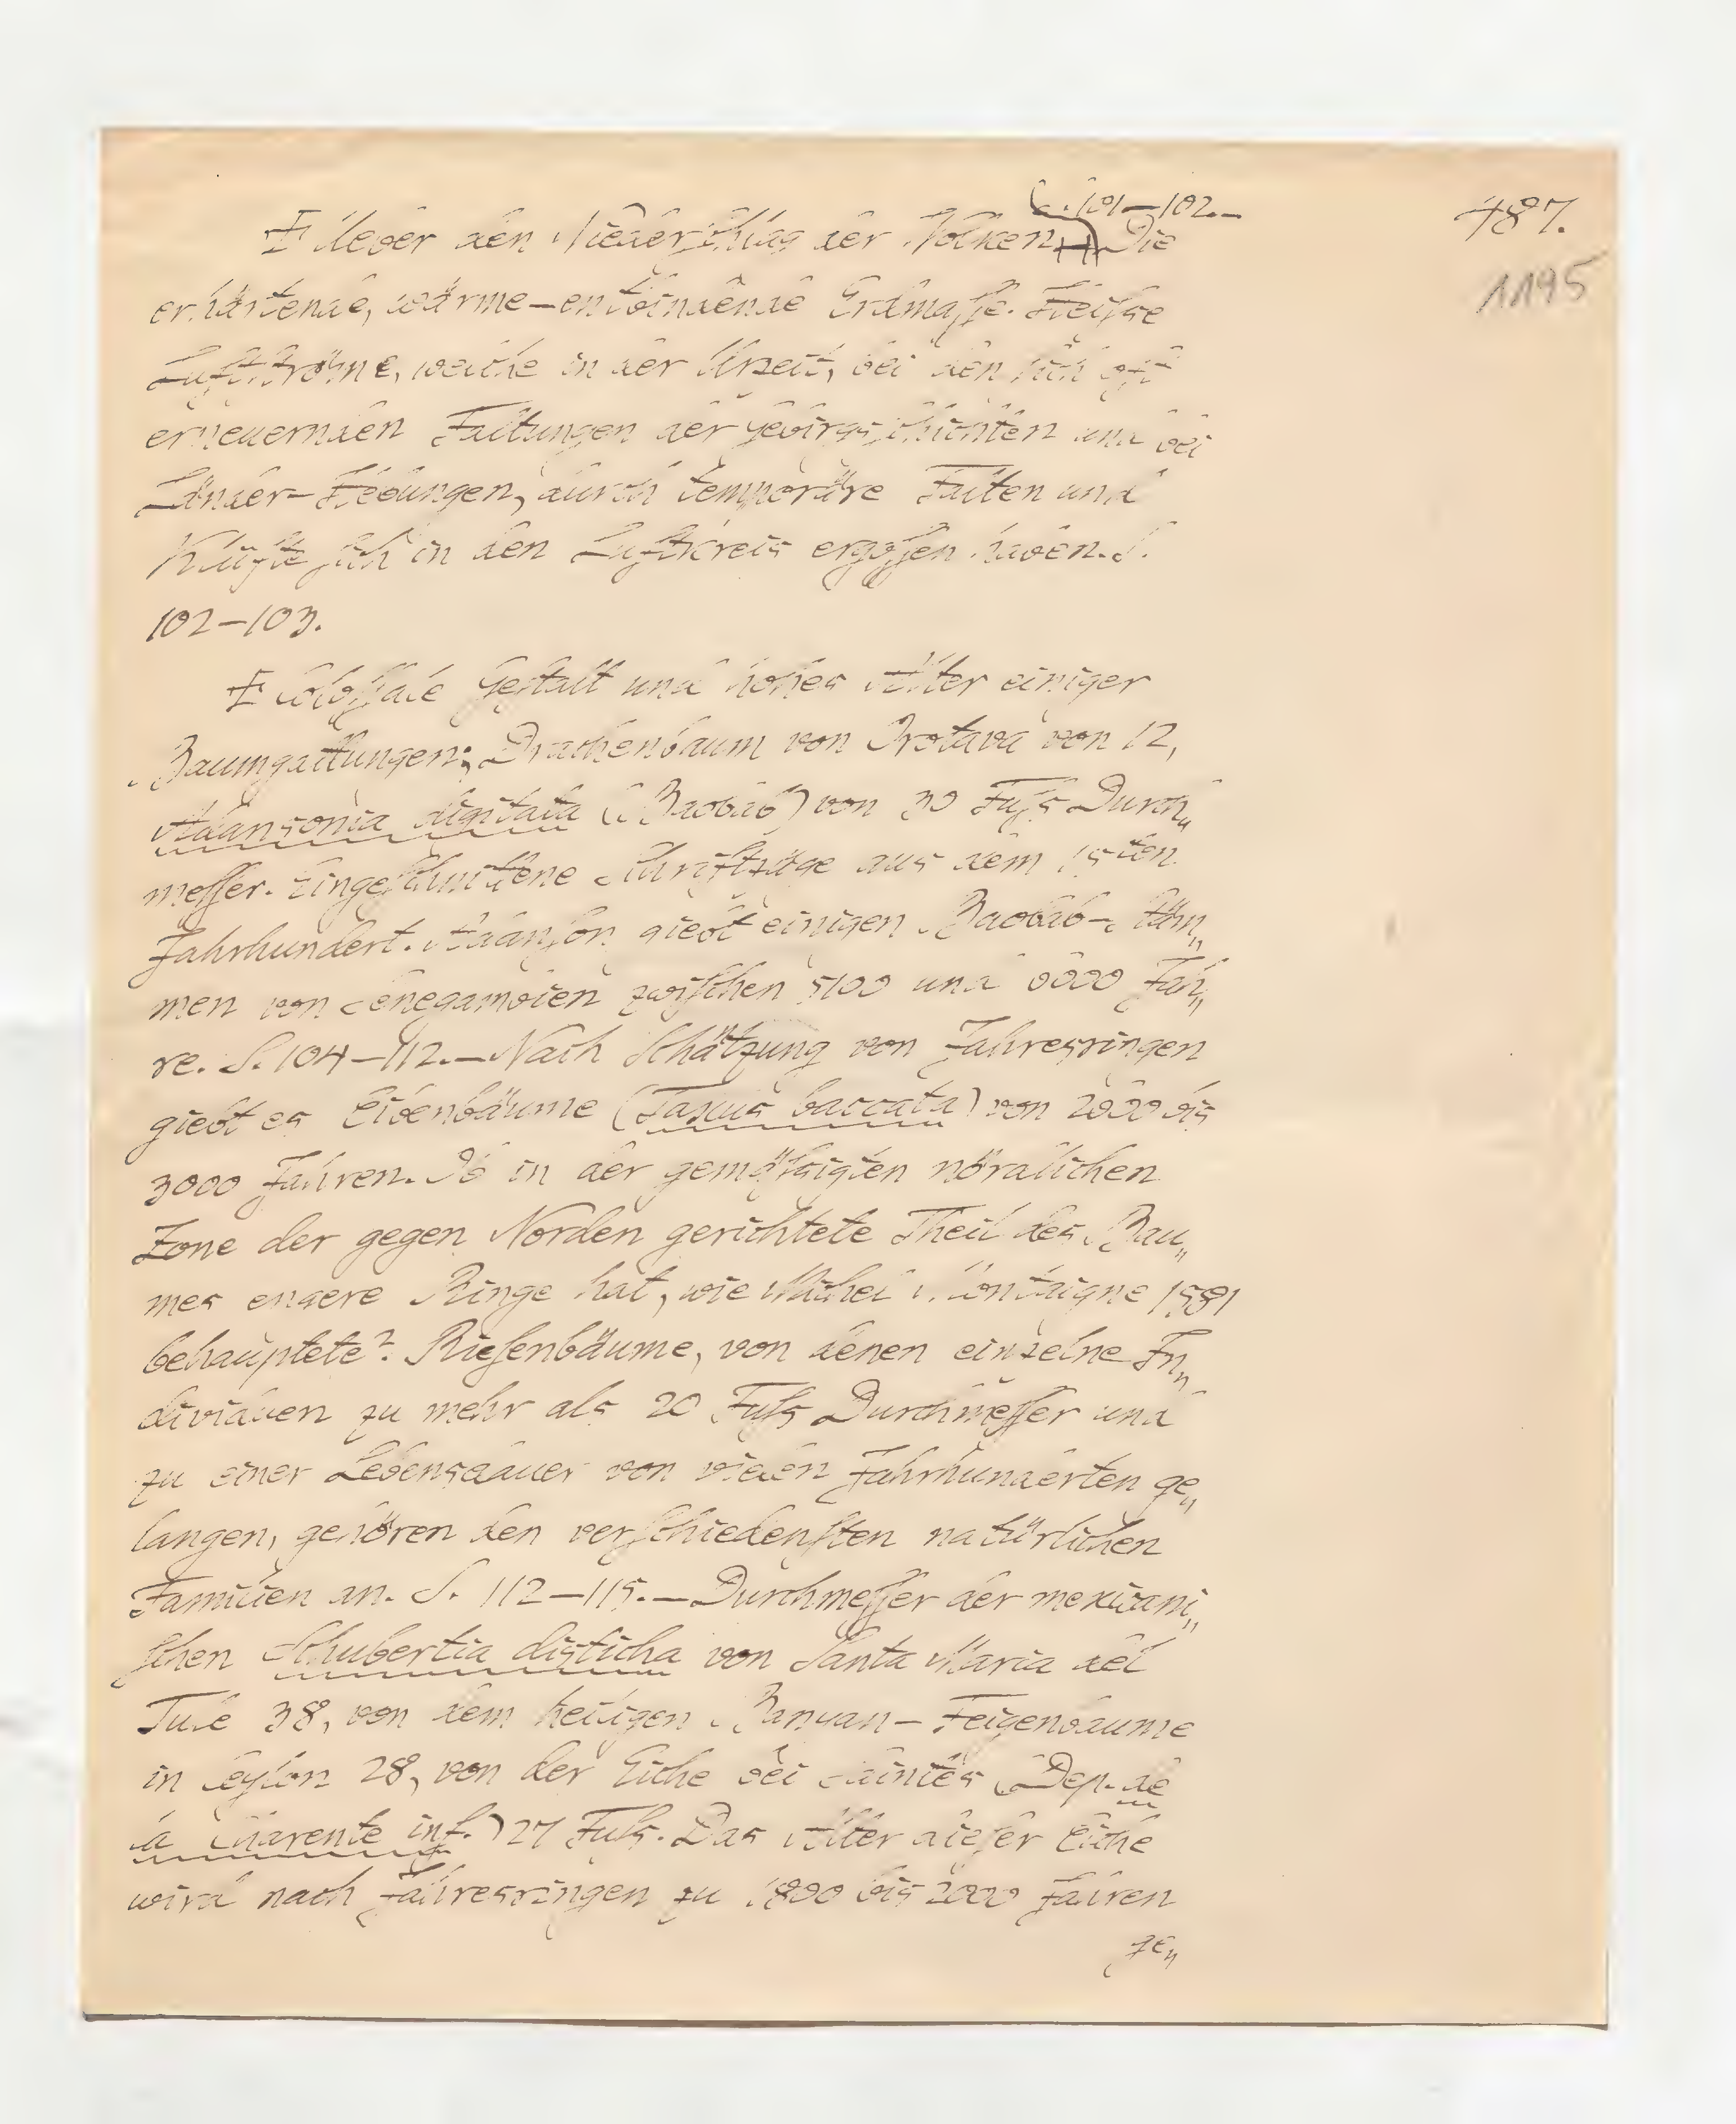 S. 101–102.–
487.
1195
Ueber den Niederschlag der Wolken. Die
erhärtende, wärme–entbindende Erdmasse. Heiße
Luftströme, welche in der Urzeit, bei den sich oft
erneuernden Faltungen der Gebirgsschichten und bei
Länder–Hebungen, durch temporäre Falten und
Klüfte sich in den Luftkreis ergossen haben. S.
102–103.
Colossale Gestalt und hohes Alter einiger
Baumgattungen; Drachenbaum von Orotava von 12,
Adansonia digitata (Baobab) von 30 Fuß Durch„
messer. Eingeschnittene Schriftzüge aus dem 15ten
Jahrhundert. Adanson giebt einigen Baobab–Stäm„
men von Senegambien zwischen 5100 und 6000 Jah„
re. S. 104–112.–Nach Schätzung von Jahresringen
giebt es Eibenbäume (Taxus baccata) von 2600 bis
3000 Jahren. Ob in der gemäßigten nördlichen
Zone der gegen Norden gerichtete Theil des Bau„
mes engere Ringe hat, wie Michel Montaigne 1581
behauptete? Riesenbäume, von denen einzelne In„
dividuen zu mehr als 20 Fuß Durchmesser und
zu einer Lebensdauer von vielen Jahrhunderten ge„
langen, gehören den verschiedensten natürlichen
Familien an. S. 112–115.–Durchmesser der mexicani„
schen Schubertia disticha von Santa Maria del
Tule 38, von dem heiligen Banyan–Feigenbaume
in Ceylon 28, von der Eiche bei Saintes (Dep. de
la Charente inf.) 27 Fuß. Das Alter dieser Eiche
wird nach Jahresringen zu 1800 bis 2000 Jahren
ge„